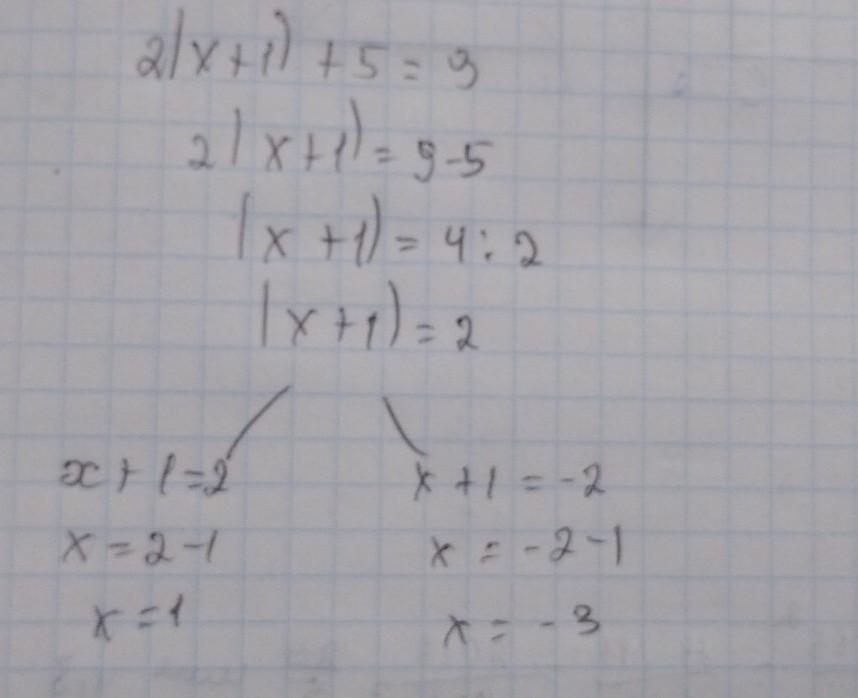 2|x+1|+5=9
2|x+1|=9-5
|x+1|=4:2
|x+1|=2
x+1=2 x+1=-2
x=2-1 x=-2-1
x=1 x=-3